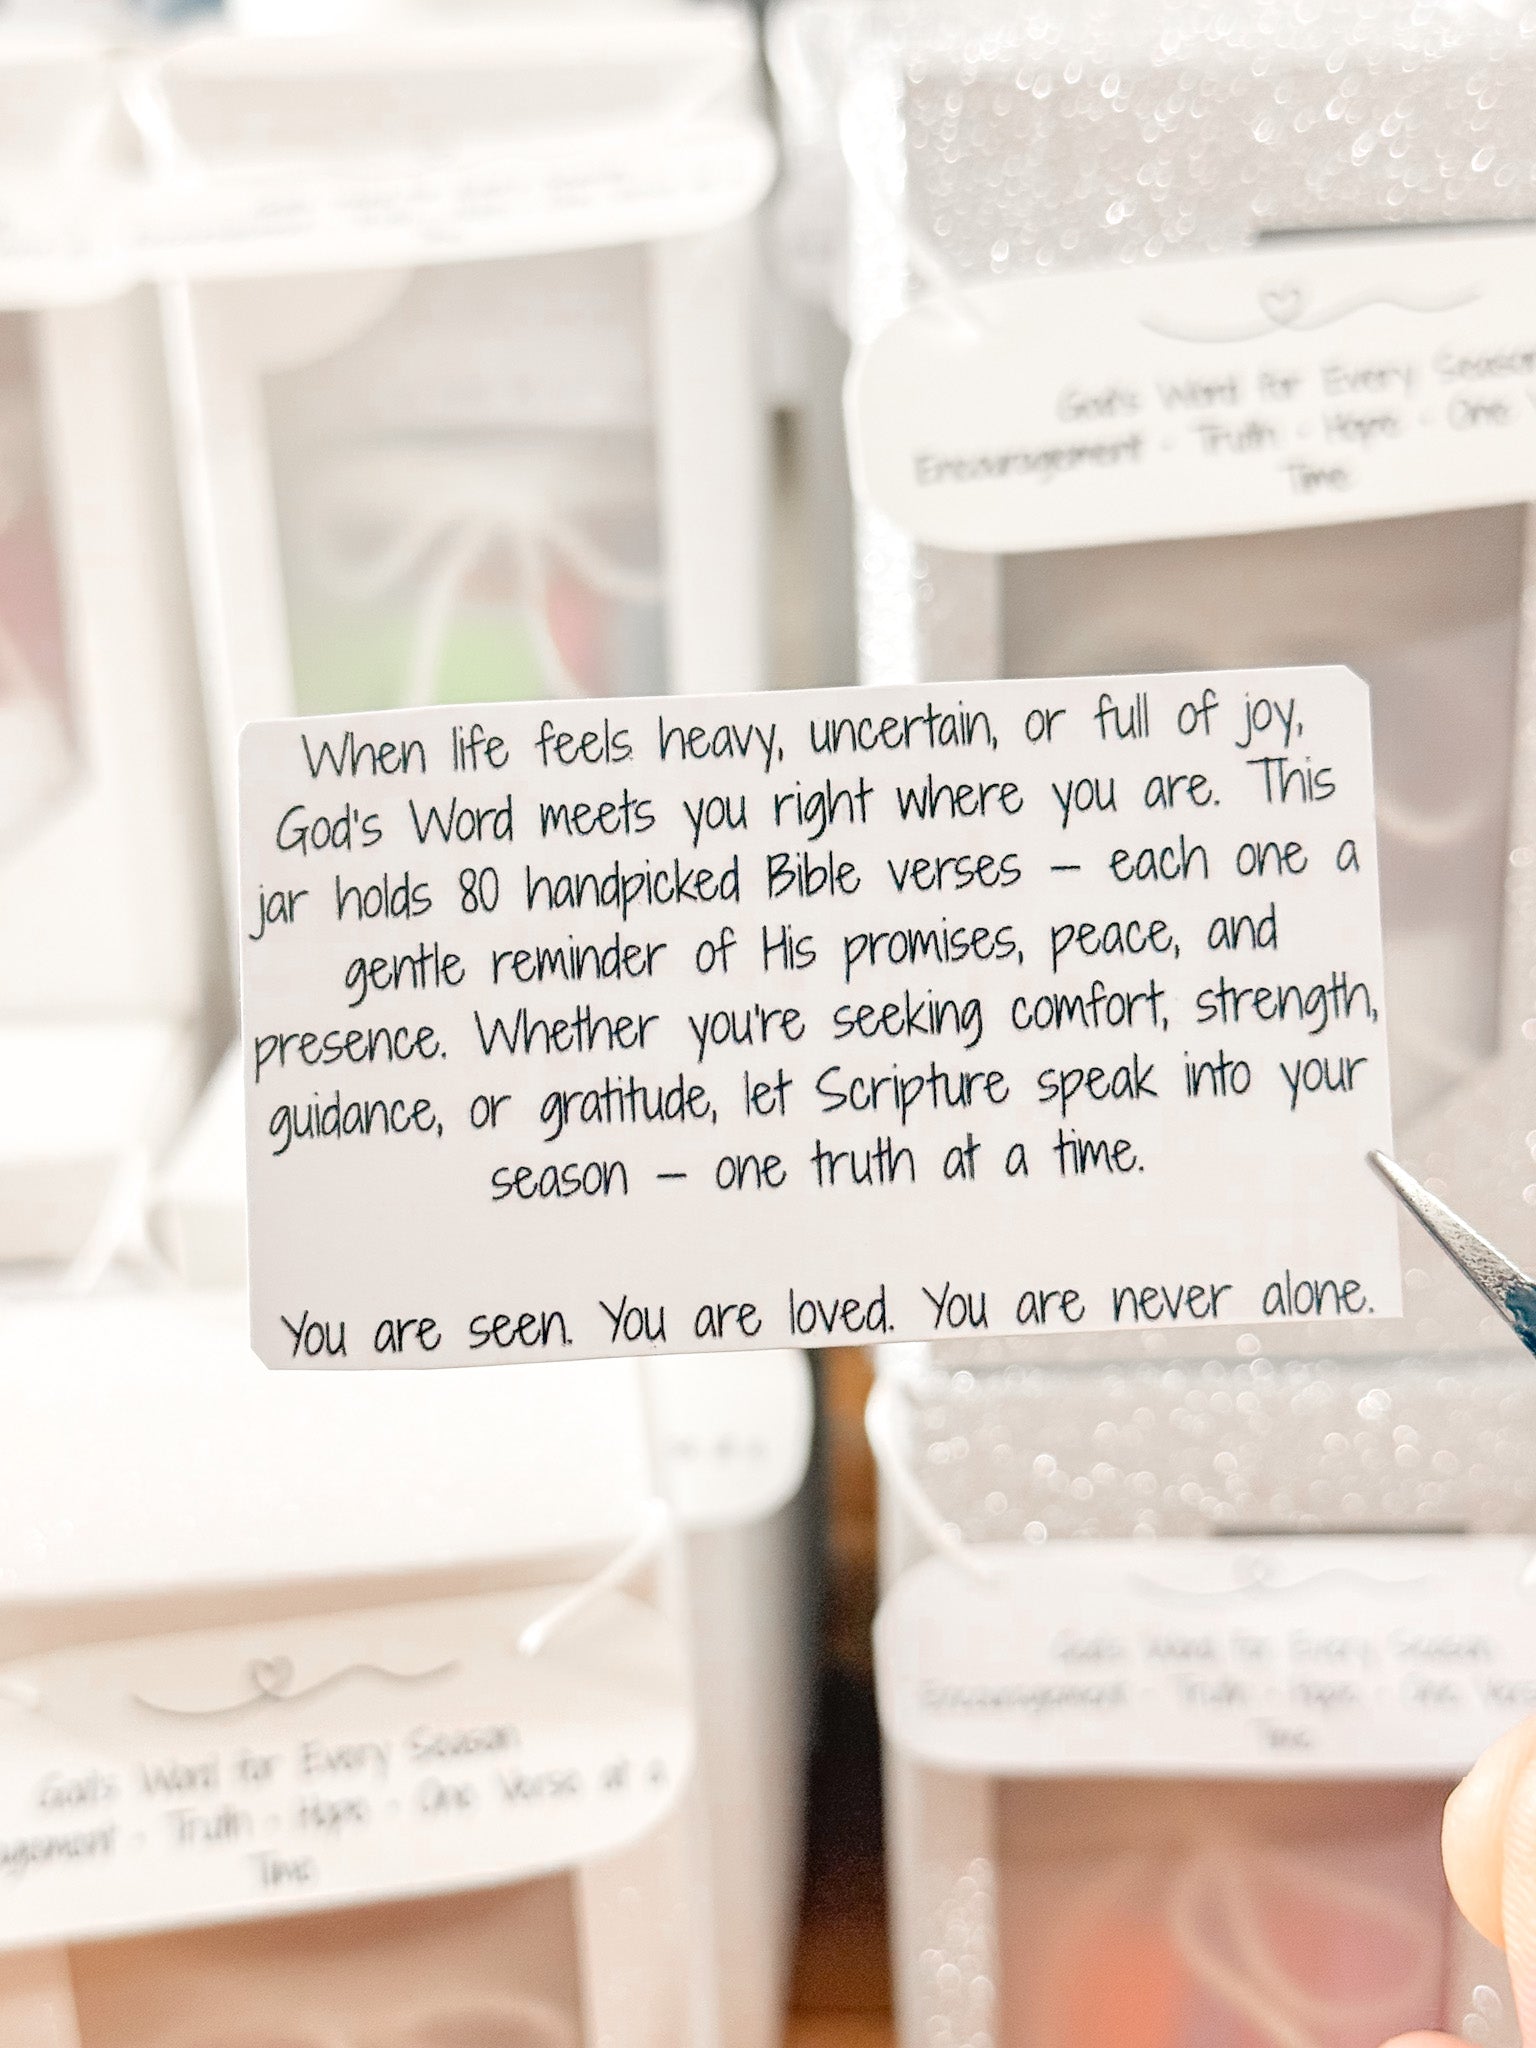 God's Word for Every Season
Encouragement - Truth - Hope - One
Time
When life feels heavy, uncertain, or full of joy,
God's Word meets you right where you are. This
jar holds 80 handpicked Bible verses – each one a
gentle reminder of His promises, peace, and
presence. Whether you're seeking comfort, strength,
guidance, or gratitude, let Scripture speak into your
season – one truth at a time.
You are seen. You are loved. You are never alone.
God's Word for Every Season
Truth - Hope - One Verse at a
Time
God's Word for Every Season
Encouragement - Truth - Hope - One
Time